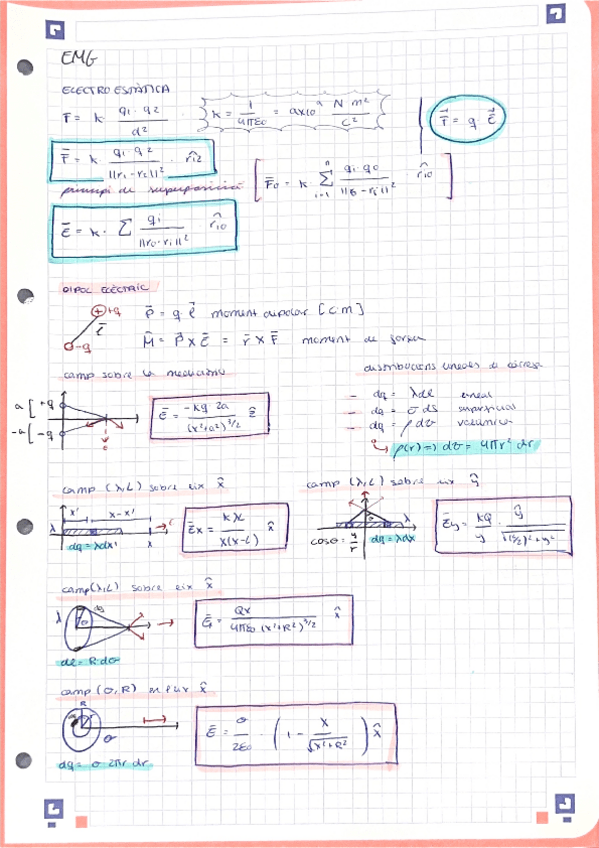 EMG
ELECTROESTÀTICA
F = k q1·q2 / d²
k = 1 / 4πε0 = 9x10⁹ N m² / C²
F̄ = q Ē
F̄ = k · q1·q2 / ||r1-r2||² · r̂12
principi de superposició
F̄0 = k · Σ (i=1, n) qi·q0 / ||r0-ri||² · r̂i0
Ē = k · Σ qi / ||r0-ri||² · r̂i0
DIPOL ELÈCTRIC
+q
l̄
-q
p̄ = q l̄ moment dipolar [C·m]
M̄ = P̄ x Ē = r̄ x F̄ moment de força
camp sobre la mediatriu
a [ +q
-a [ -q
Ē = -kq 2a / (x²+a²)^3/2 ẑ
distribucions lineals de càrrega
- dq = λdl lineal
- dq = σ ds superficial
- dq = ρ dv volúmica
ρ(r) => dv = 4πr² dr
camp (λ,L) sobre eix x̂
x' x-x'
λ
dq = λdx' x
Ēx = kλ / x(x-L) x̂
camp (λ,L) sobre eix ŷ
λ
cosθ = y/r dq = λdx
Ēy = kQ / y · ŷ / √((L/2)²+y²)
camp (λ,L) sobre eix x̂
λ
dl = R·dθ
Ē = Qx / 4πε0 (x²+R²)^3/2 x̂
camp (σ,R) en l'eix x̂
R
σ
dq = σ 2πr dr
Ē = σ / 2ε0 · (1 - x / √x²+R²) x̂